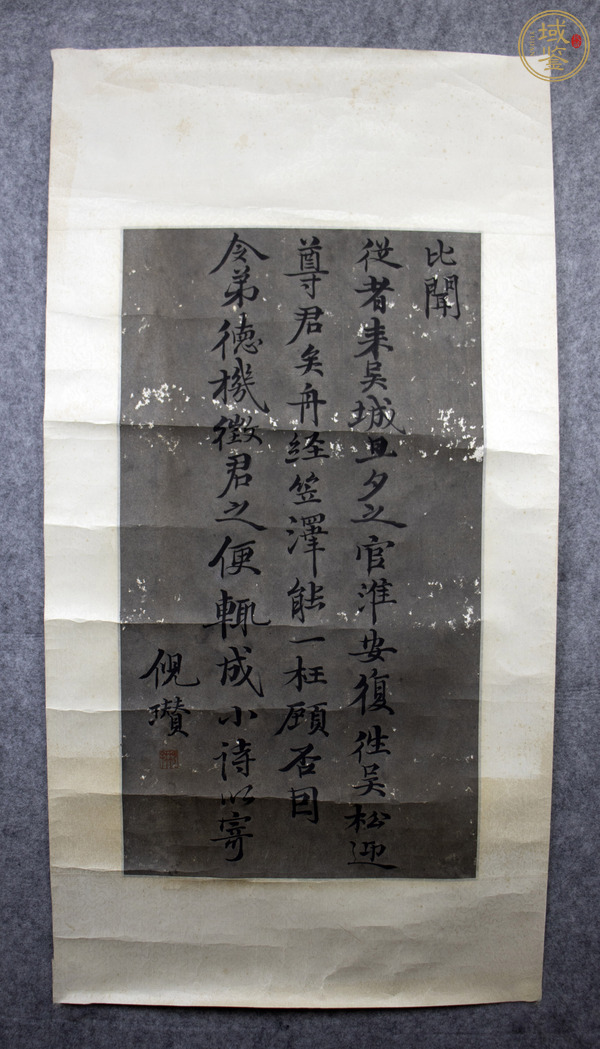 比聞
従者来吴城旦夕之官淮安復往吴松迎
尊君矣舟經笠澤能一枉顾否因
令弟德機徵君之便輒成小诗以寄
倪瓚
域鉴